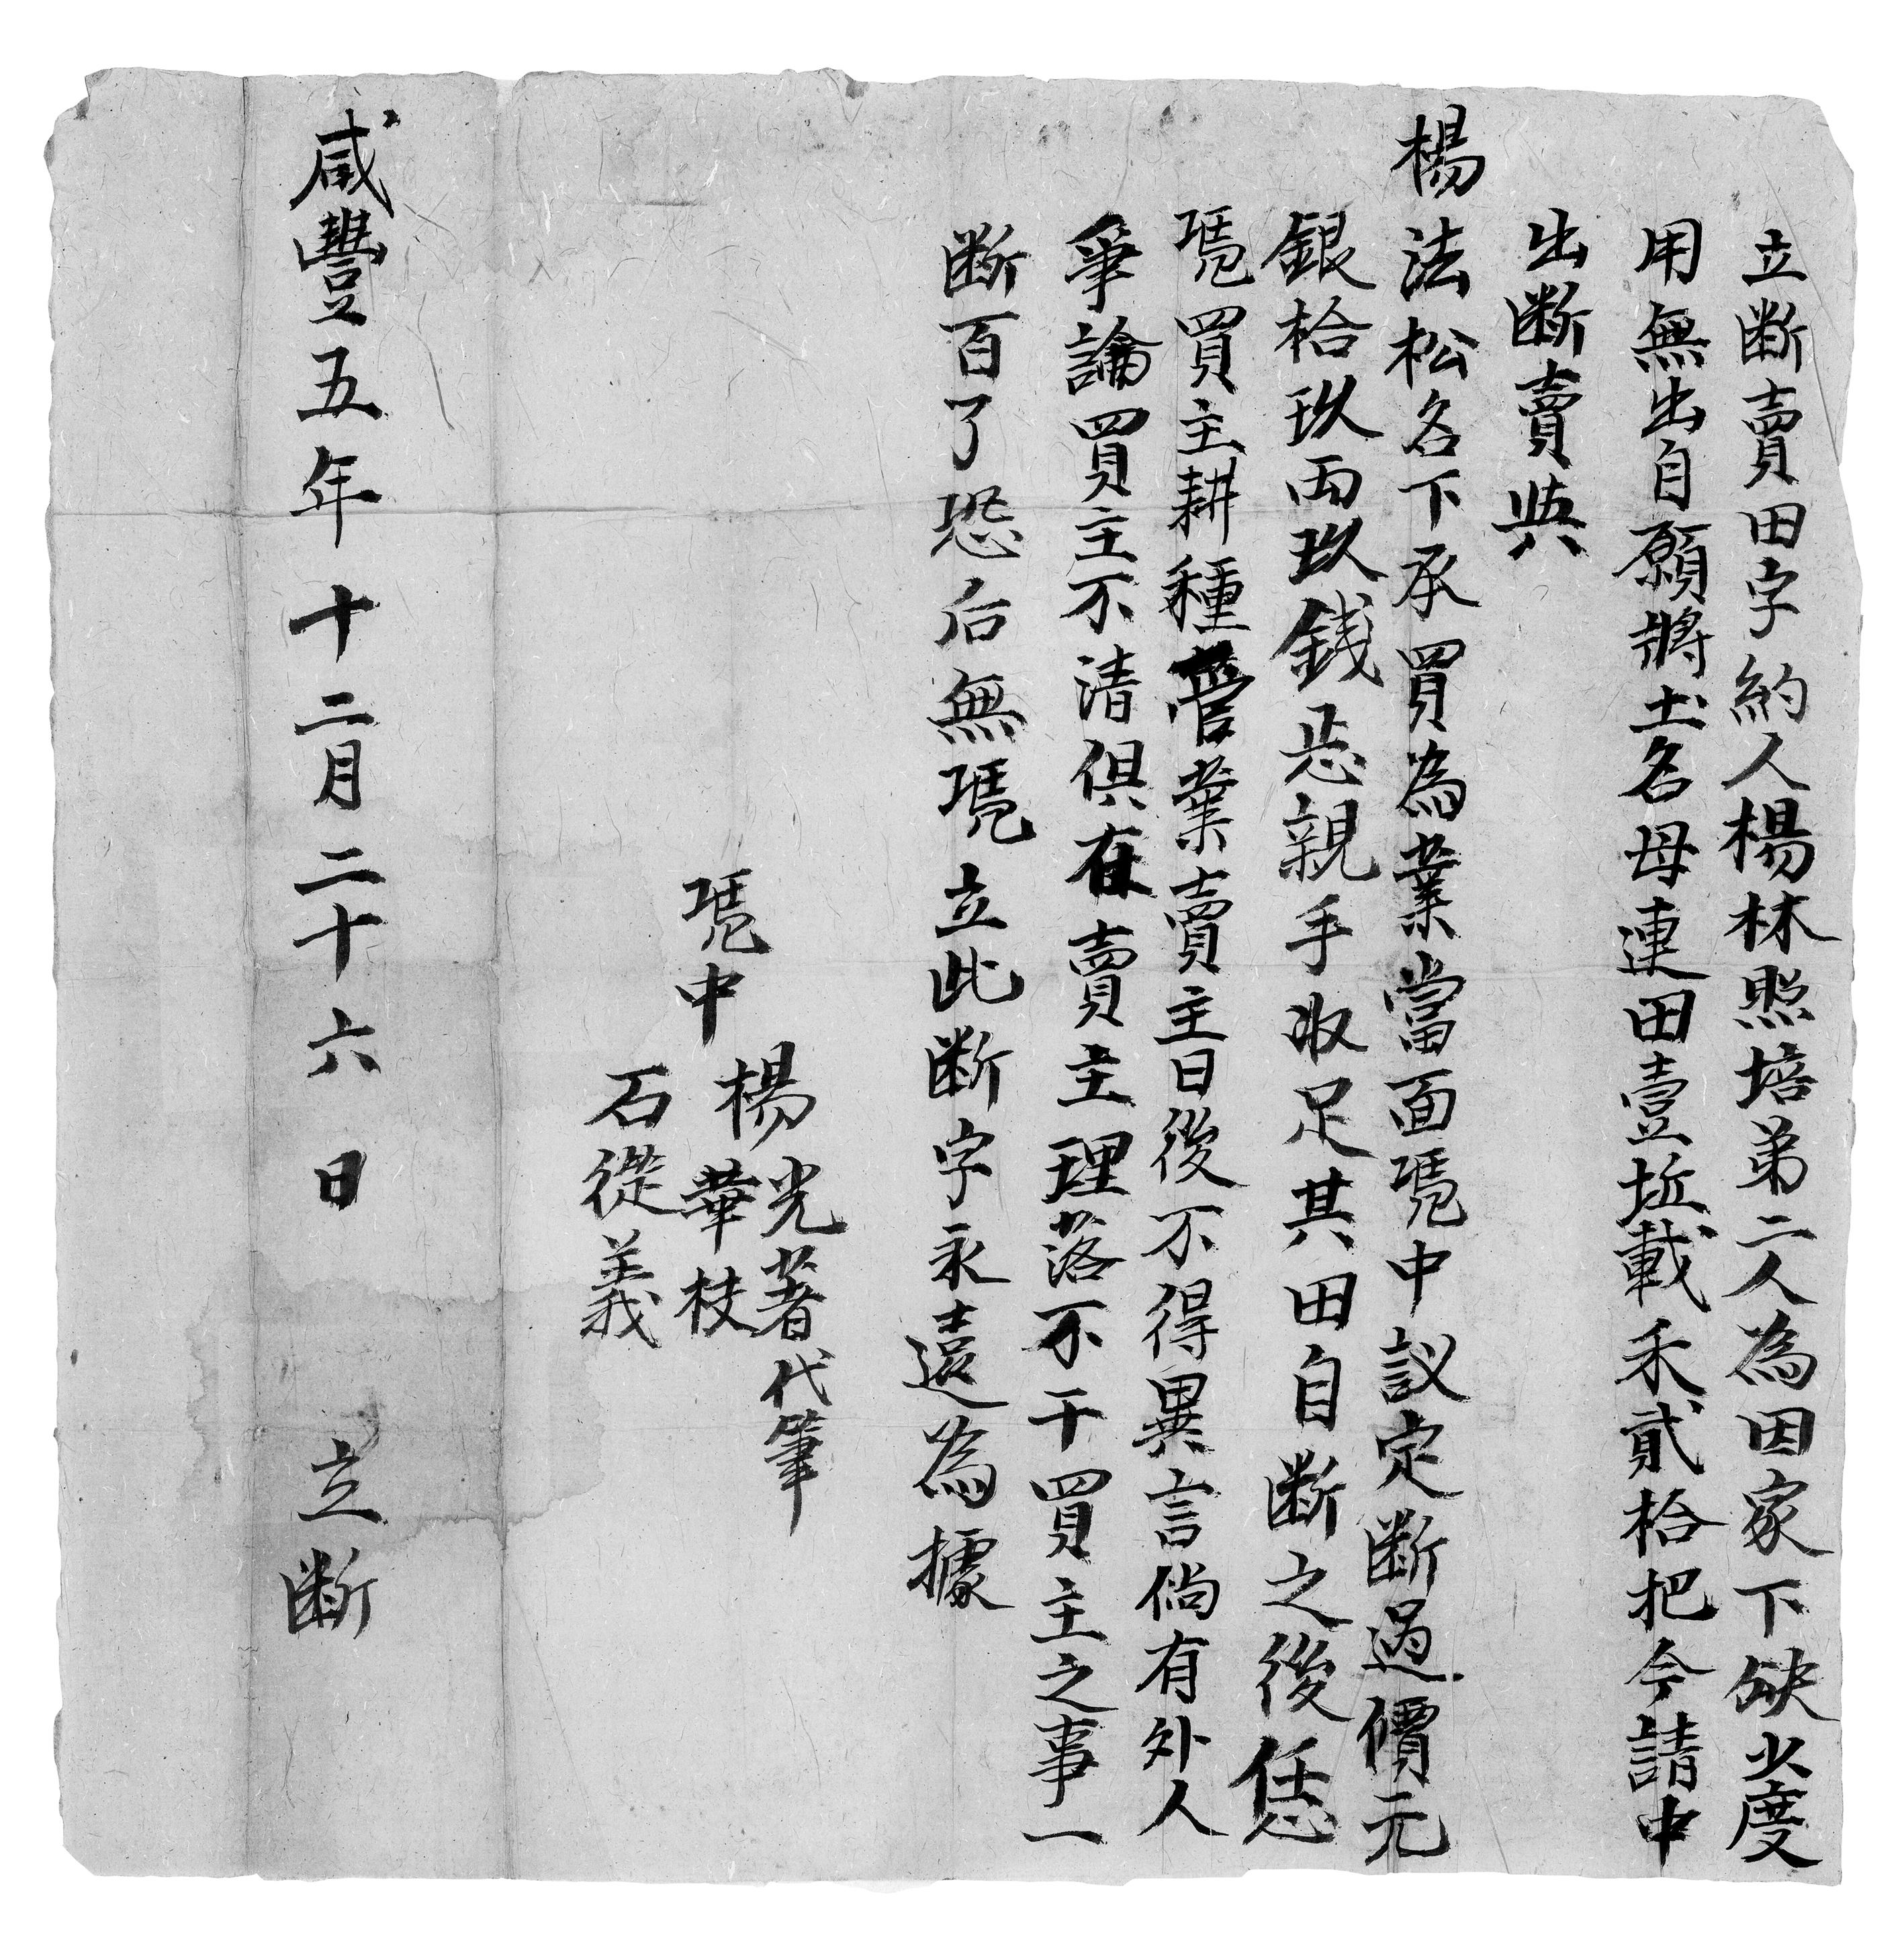 立断賣田字約人楊林照培弟二人為因家下缺少度
用無出自願將土名母連田壹坵載禾貳拾把今請中
出断賣與
楊法松名下承買為業當面凴中議定断過價元
銀拾玖両玖錢㤙親手收足其田自断之後恁
凴買主耕種管業賣主日後不得異言倘有外人
爭論買主不清俱在賣主理落不干買主之事一
断百了恐后無凴立此断字永遠為據
凴中
楊光著代筆
華枝
石從義
咸豐五年十二月二十六日 立断